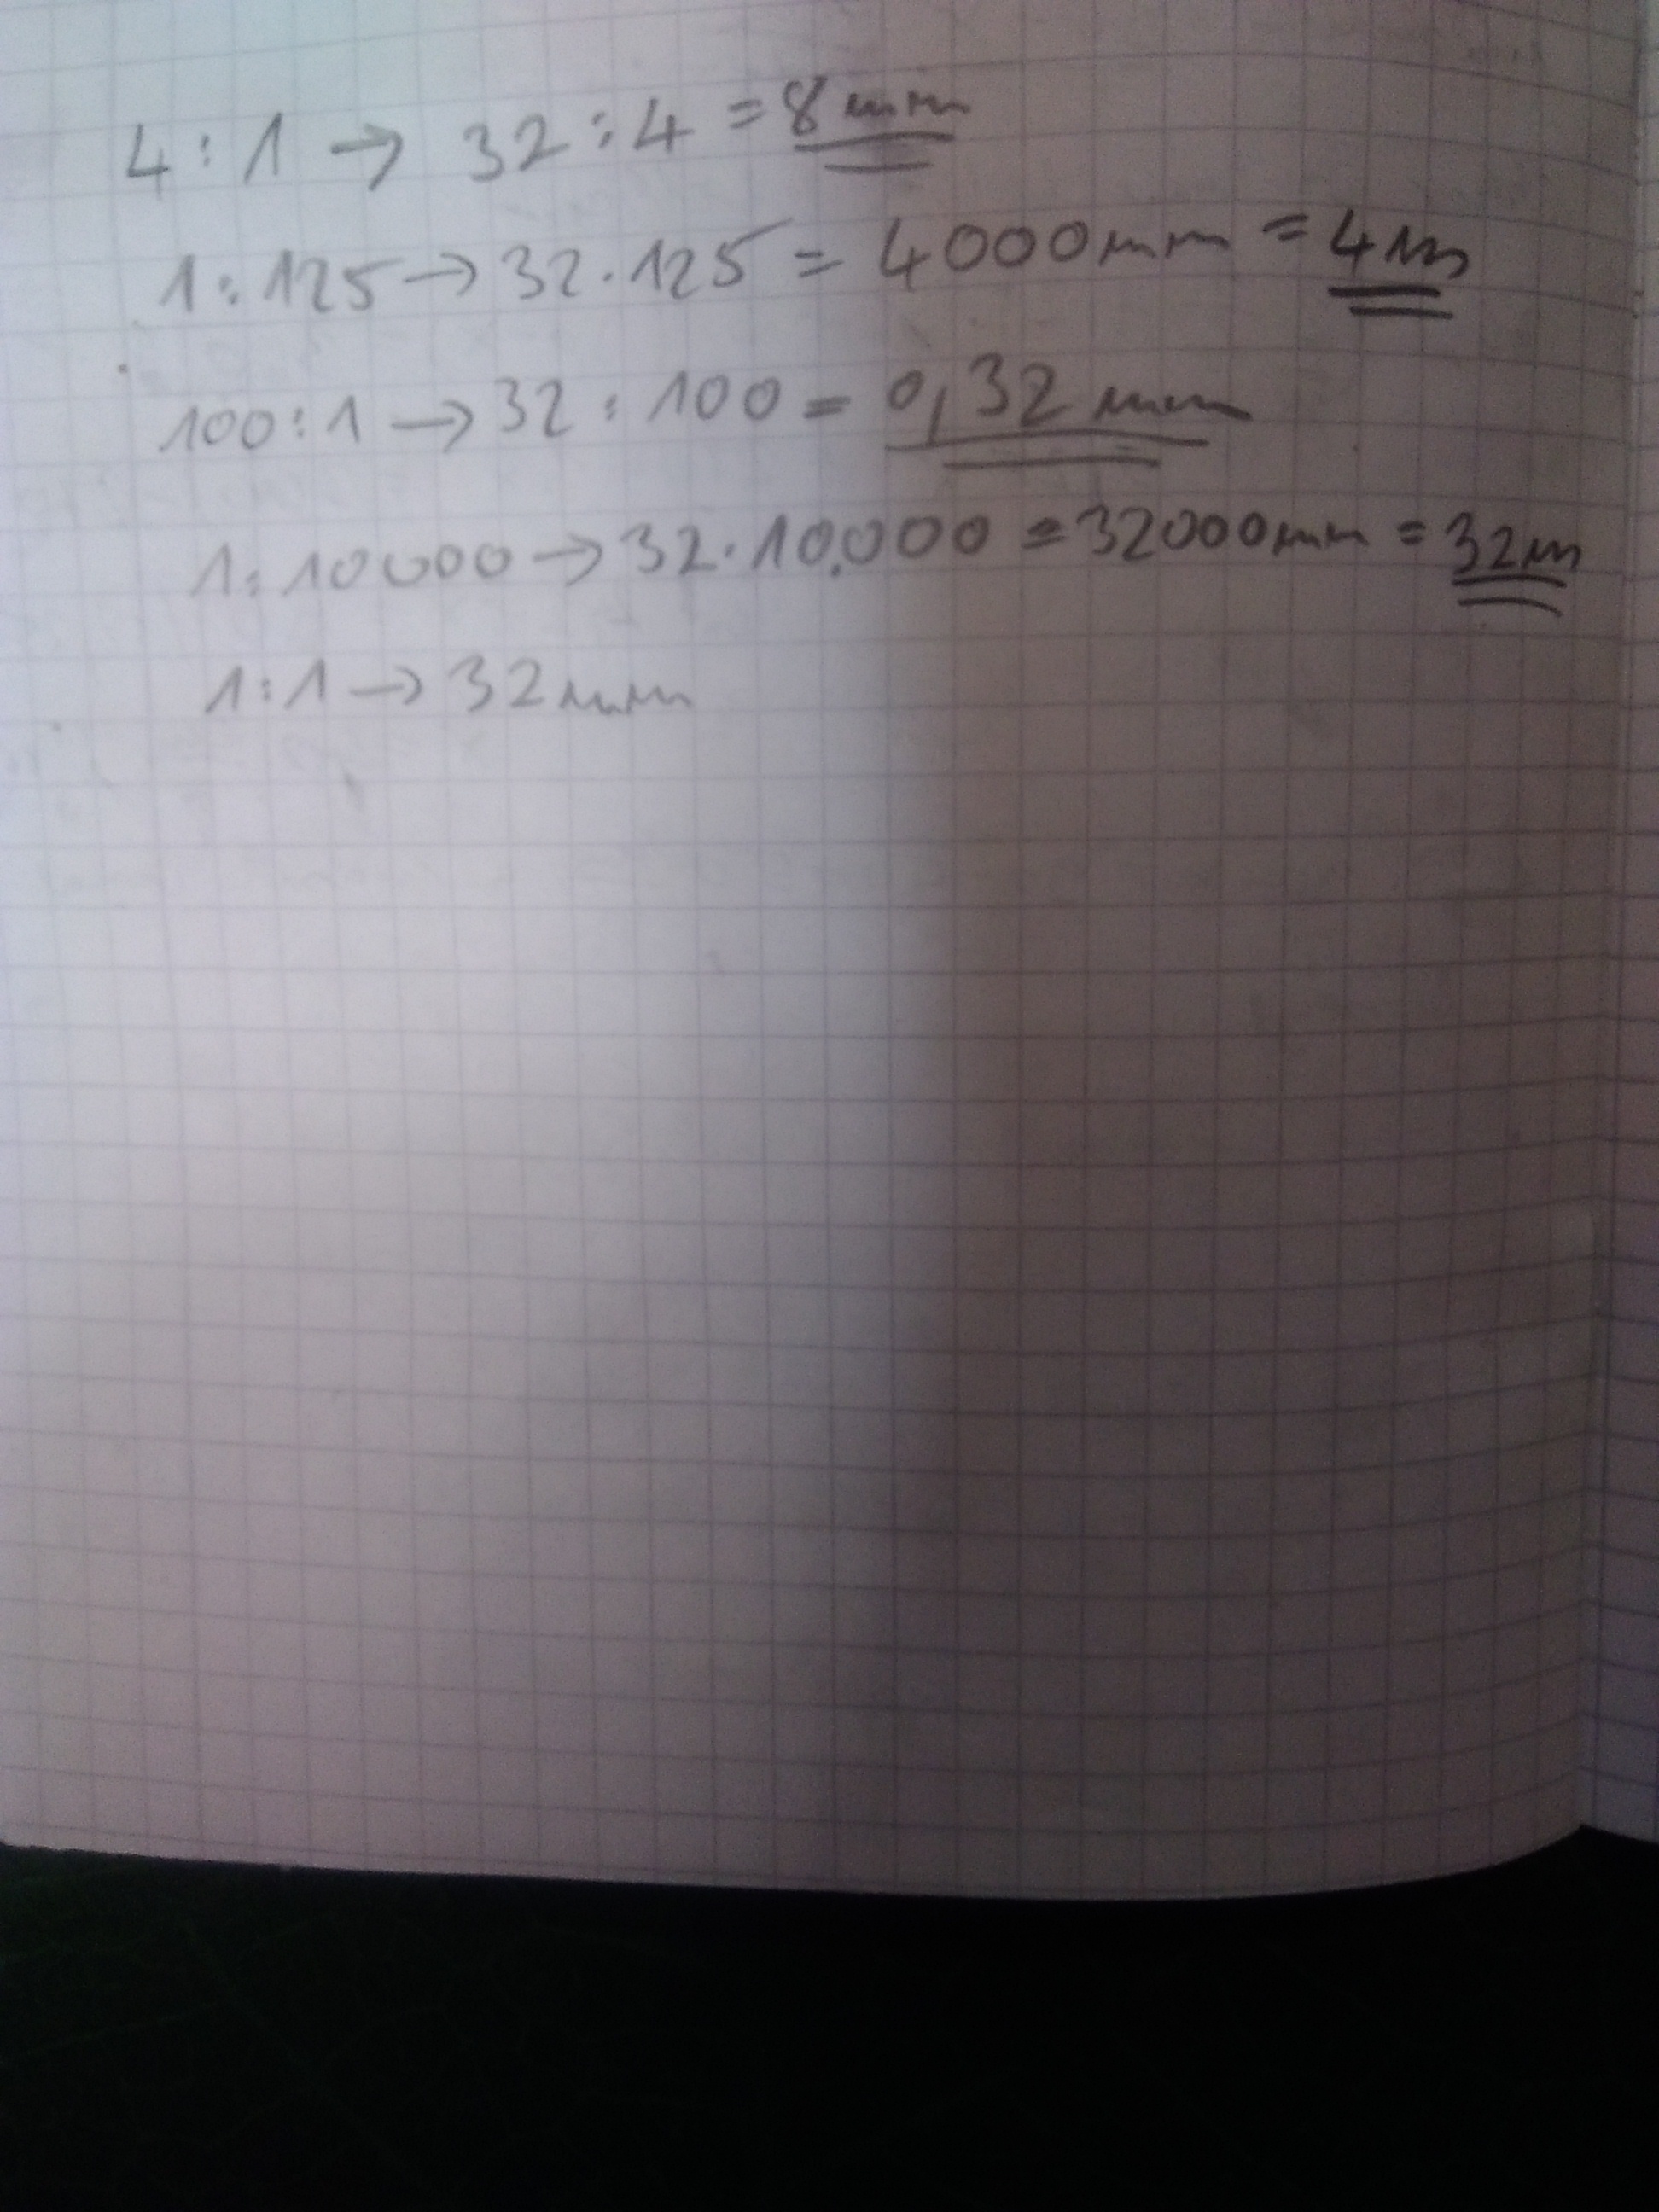 4 : 1 → 32 : 4 = 8 mm
1 : 125 → 32 · 125 = 4000mm = 4m
100 : 1 → 32 : 100 = 0,32 mm
1 : 10000 → 32 · 10.000 = 32000mm = 32m
1 : 1 → 32mm